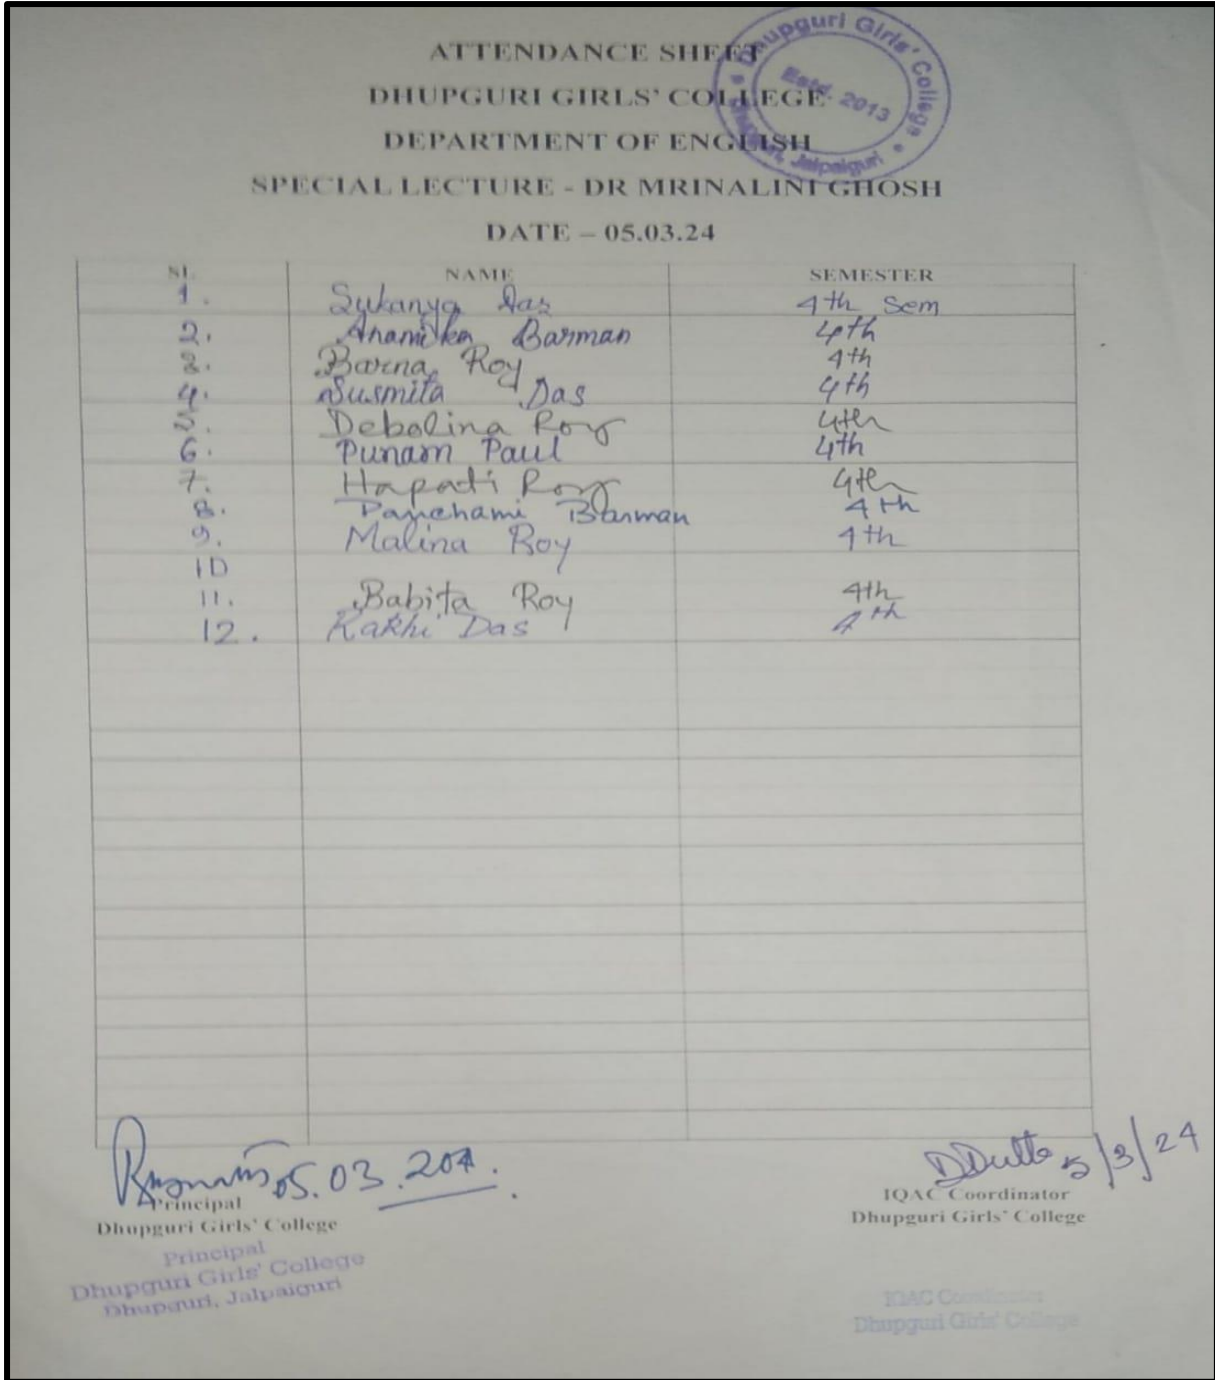 Dhupguri Girls' College
Estd. 2013
Dhupguri, Jalpaiguri
ATTENDANCE SHEET
DHUPGURI GIRLS' COLLEGE
DEPARTMENT OF ENGLISH
SPECIAL LECTURE - DR MRINALINI GHOSH
DATE – 05.03.24
SL NAME SEMESTER
1. Sukanya Das 4th Sem
2. Anamika Barman 4th
3. Barna Roy 4th
4. Susmita Das 4th
5. Debolina Roy 4th
6. Punam Paul 4th
7. Hapati Roy 4th
8. Panchami Barman 4th
9. Malina Roy 4th
10
11. Babita Roy 4th
12. Rakhi Das 4th
05.03. DDutta 5/3/24
Principal IQAC Coordinator
Dhupguri Girls' College Dhupguri Girls' College
Principal
Dhupguri Girls' College
Dhupguri, Jalpaiguri
IQAC Coordinator
Dhupguri Girls' College